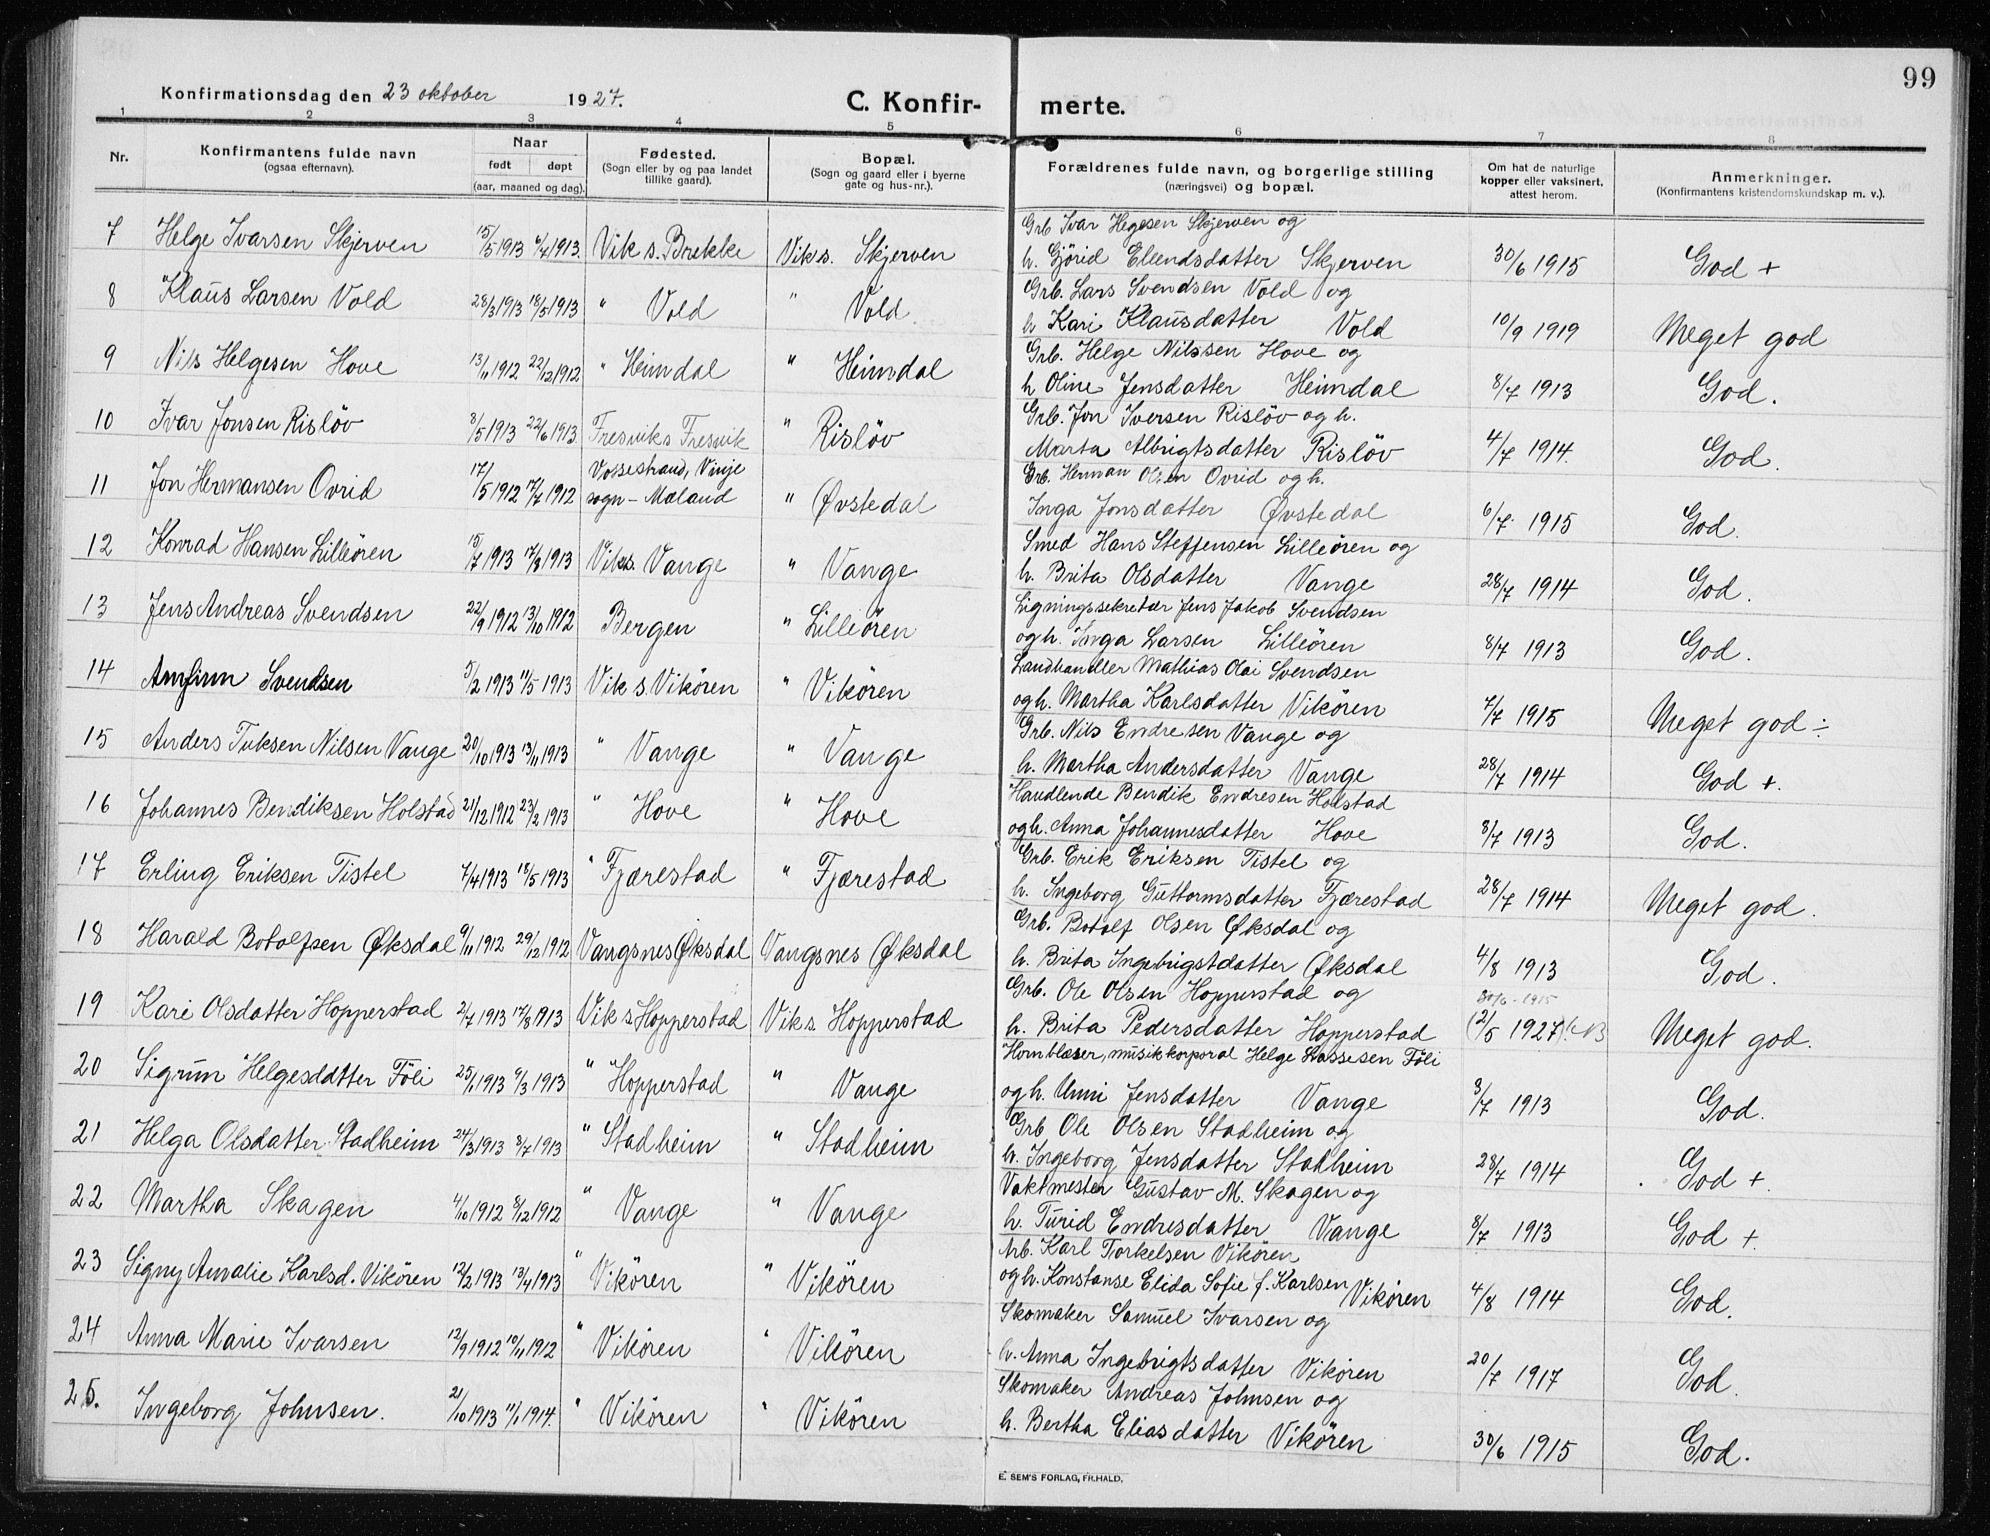 99
Konfirmationsdag den 23 oktober 1927. C. Konfir- merte.
1 2 3 4 5 6 7 8
Nr. Konfirmantens fulde navn (ogsaa efternavn). Naar født døpt (aar, maaned og dag). Fødested. (Sogn eller by og paa landet tillike gaard). Bopæl. (Sogn og gaard eller i byerne gate og hus-nr.). Forældrenes fulde navn, og borgerlige stilling (næringsvei) og bopæl. Om hat de naturlige kopper eller vaksinert, attest herom. Anmerkninger. (Konfirmantens kristendomskundskap m. v.).
Grb Ivar Hegesen Skjerven og
7 Helge Ivarsen Skjerven 15/5 1913 6/7 1913. Vik s. Brekke Vik s. Skjerven h. Gjørid Elendsdatter Skjerven 30/6 1915 God +
Grb. Lars Svendsen Vold og
8 Klaus Larsen Vold 28/3 1913 18/5 1913 " Vold " Vold h Kari Klausdatter Vold 10/9 1919 Meget god
Grb. Helge Nilssen Hove og
9 Nils Helgesen Hove 13/11 1912 22/12 1912 " Heimdal " Heimdal h Oline Jensdatter Heimdal 8/7 1913 God.
Grb. Jon Iversen Risløv og h.
10 Ivar Jonsen Risløv 8/5 1913 22/6 1913 Fresviks Fresvik " Risløv Marta Albrigtsdatter Risløv 4/7 1914. God.
Grb. Herman Olsen Ovrid og h.
11 Jon Hermansen Ovrid 17/5 1912 17/7 1912 Vossestrand, Vinje sogn - Mæland " Øvstedal Inga Jonsdatter Øvstedal 6/7 1915 God.
Smed Hans Steffensen Lilleören og
12 Konrad Hansen Lilleören 15/7 1913 17/8 1913 Vik s. Vange " Vange h. Brita Olsdatter Vange 28/7 1914 God.
Ligningssekretær Jens Jakob Svendsen
13 Jens Andreas Svendsen 22/9 1912 13/10 1912 Bergen " Lilleören og h. Inga Larsen Lilleören 8/7 1913 God.
Landhandler Mathias Olai Svendsen
14 Arnfinn Svendsen 5/2 1913 11/5 1913 Vik s. Vikören " Vikören og h. Martha Karlsdatter Vikören 7/7 1915 Meget god ÷
Grb. Nils Endresen Vange og
15 Anders Tuksen Nilsen Vange 20/10 1913 13/11 1913 " Vange " Vange h. Martha Andersdatter Vange 28/7 1914 God +.
Handlende Bendik Endresen Holstad
16 Johannes Bendiksen Holstad 21/12 1912 23/2 1913 " Hove " Hove og h. Anna Johannesdatter Hove 8/7 1913 God.
Grb. Erik Eriksen Tistel og
17 Erling Eriksen Tistel 7/4 1913 18/5 1913 " Fjærestad " Fjærestad h. Ingeborg Guttormsdatter Fjærestad 28/7 1914 Meget god.
Grb. Botolf Olsen Øksdal og
18 Harald Botolfsen Øksdal 9/11 1912 29/12 1912 Vangsnes Øksdal Vangsnes Øksdal h. Brita Ingebrigstdatter Øksdal 4/8 1913 God.
Grb. Ole Olsen Hopperstad og 30/6 - 1915
19 Kari Olsdatter Hopperstad 2/7 1913 17/8 1913 Vik s Hopperstad Vik s. Hopperstad h. Brita Pedersdatter Hopperstad (2/5 1927) Meget god.
Hornblæser, musikkorporal Helge Stassesen Föli
20 Sigrun Helgesdatter Föli 25/1 1913 9/3 1913 " Hopperstad " Vange og h. Unni Jensdatter Vange 3/7 1913 God.
Grb Ole Olsen Stadheim og
21 Helga Olsdatter Stadheim 24/3 1913 8/7 1913 " Stadheim " Stadheim h. Ingeborg Jensdatter Stadheim 28/7 1914 God +.
Vaktmester Gustav M. Skagen og
22 Martha Skagen 4/10 1912 8/12 1912 " Vange " Vange h. Turid Endresdatter Vange 8/7 1913 God +.
Arb. Karl Torkelsen Vikören
23 Signy Amalie Karlsd. Vikören 12/2 1913 13/4 1913 " Vikören " Vikören og h. Konstanse Elida Sofie f. Karlsen Vikören 4/8 1914 God.
Skomaker Samuel Ivarsen og
24 Anna Marie Ivarsen 12/9 1912 10/11 1912 " Vikören " Vikören h. Anna Ingebrigtsdatter Vikören 20/7 1917 God.
Skomaker Andreas Johnsen og
25. Ingeborg Johnsen. 21/10 1913 11/1 1914. " Vikören " Vikören h. Bertha Eliasdatter Vikören 30/6 1915 God.
E. SEM'S FORLAG, FR.HALD.